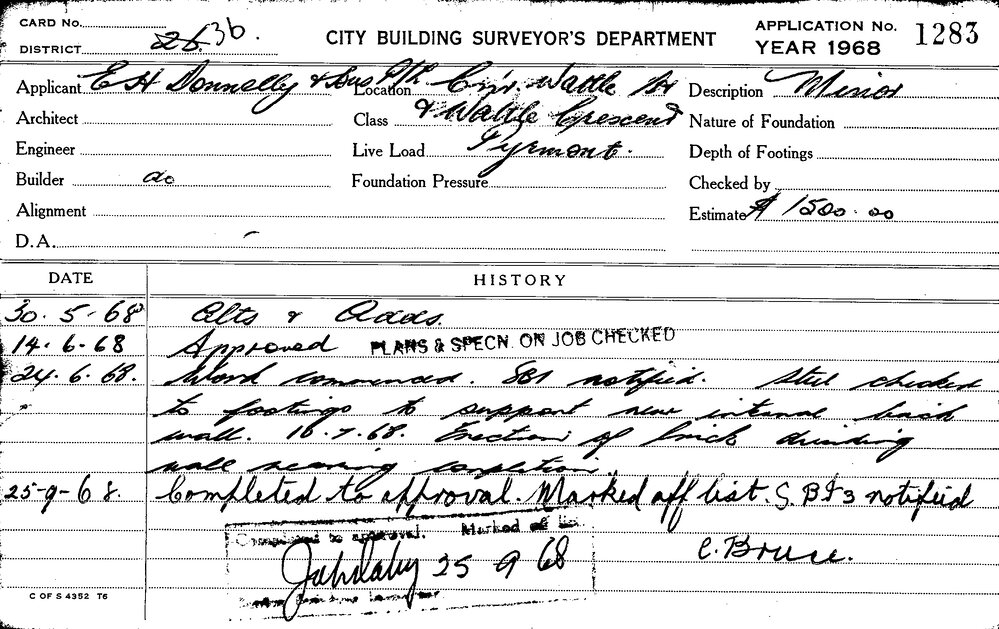 CARD No.
DISTRICT 26 36.
CITY BUILDING SURVEYOR'S DEPARTMENT
APPLICATION No. 1283
YEAR 1968
Applicant E H Donnelly & Sons Pty Location Cnr. Wattle St Description Minor
Architect Class & Wattle Crescent Nature of Foundation
Engineer Live Load Pyrmont. Depth of Footings
Builder do Foundation Pressure Checked by
Alignment Estimate $ 1500.00
D.A.
DATE HISTORY
30.5.68 Alts & Adds.
14.6.68 Approved PLANS & SPECN. ON JOB CHECKED
24.6.68. Work commenced. SB1 notified. Steel checked
" to footings to support new internal back
wall. 16.7.68. Erection of brick dividing
wall nearing completion
25-9-68. Completed to approval. Marked off list. S.B.I 3 notified
Completed to approval. Marked off list.
25 9 68
C. Bruce.
C OF S 4352 T6